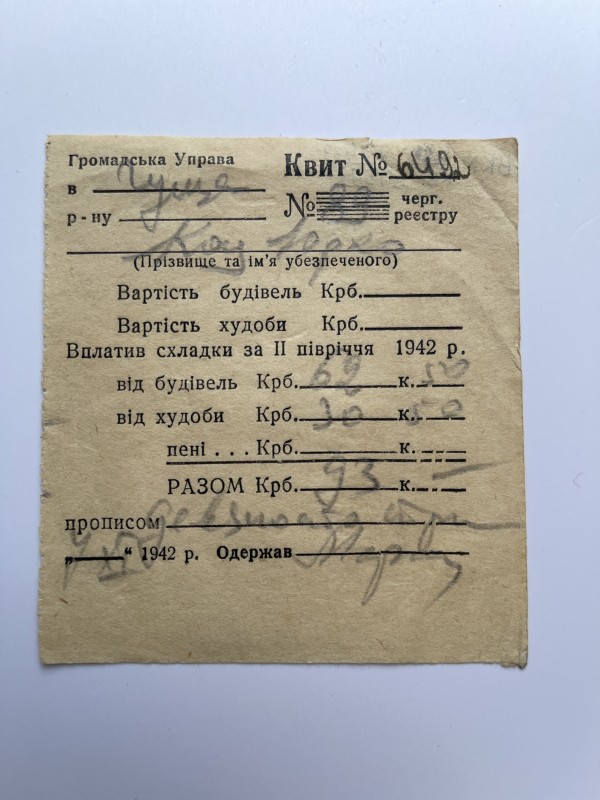 Громадська Управа Квит № 6492
в Гуща № 33 черг.
р-ну реєстру
(Прізвище та ім'я убезпеченого)
Вартість будівель Крб.
Вартість худоби Крб.
Вплатив схладки за II півріччя 1942 р.
від будівель Крб. 62 к. 50
від худоби Крб. 30 к. 50
пені . . . Крб. к.
РАЗОМ Крб. 93 к. —
прописом девяносто три
„ “ 1942 р. Одержав